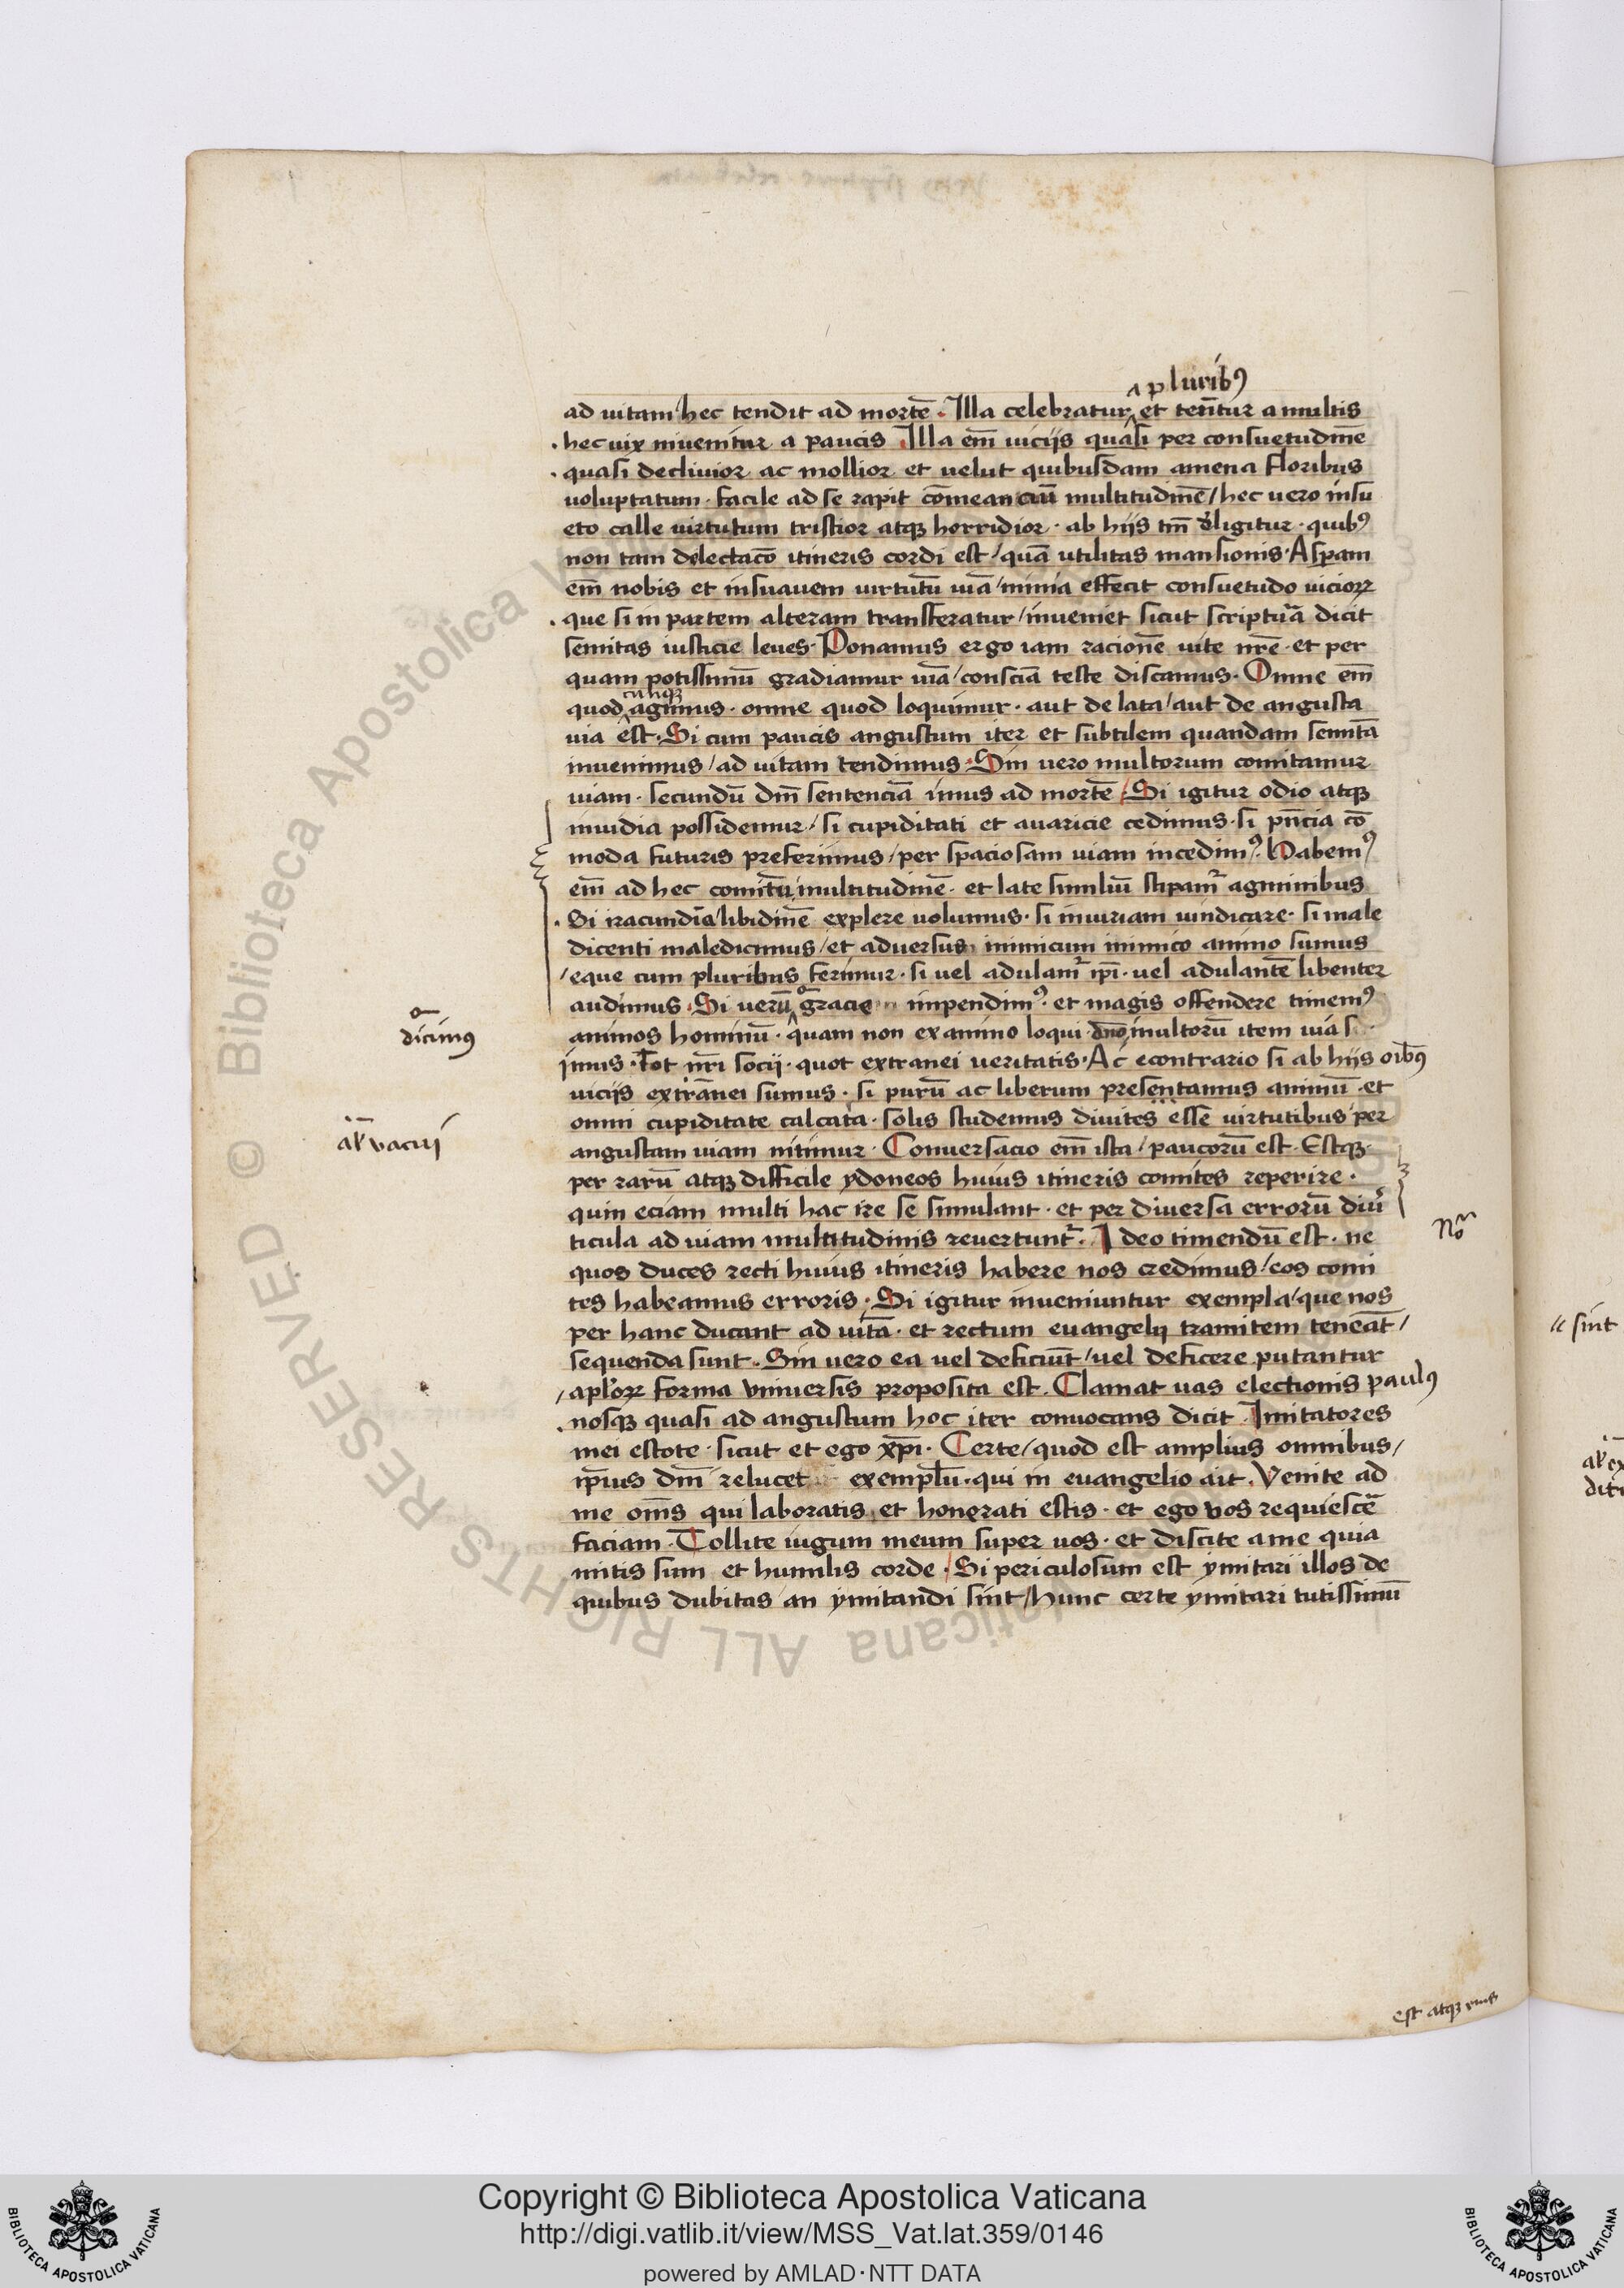 a plurib9
ad uitam / hec tendit ad mortē . Illa celebratur et tenētur a multis
. hec uix inuenitur a paucis Illa em̄ uicijs quasi per consuetudinē
. quasi decliuior ac mollior et uelut quibusdam amena floribus
uoluptatum . facile ad se rapit cōmeanciū multitudinē / hec uero insu
eto calle uirtutum tristior atqꝫ horridior . ab hijs tm̄ eligitur . quib9
non tam delectacō itineris cordi est / quā utilitas mansionis . Asperam
em̄ nobis et insuauem uirtutū uiā / nimia effecit consuetudo uicioꝝ
. que si in partem alteram transferatur / inueniet sicut scriptura dicit
semitas iusticie leues . Ponamus ergo iam racionē uite nr̄e . et per
quam potissimū gradiamur uiā / consciā teste discamus . Omne em̄
cunqꝫ
quod agimus . omne quod loquimur . aut de lata / aut de angusta
uia est . Si cum paucis angustum iter et subtilem quandam semitā
inuenimus / ad uitam tendimus . Sin uero multorum comitamur
uiam . secundū dm̄ sentenciā imus ad mortē / Si igitur odio atqꝫ
inuidia possidemur / si cupiditati et auaricie cedimus . si pn̄cia cō
moda futuris preferimus / per spaciosam uiam incedim9 . Habem9
em̄ ad hec comitū multitudinē . et late similiū stipamr̄ agminibus
. Si iracundiā / libidinē explere uolumus . si iniuriam uindicare . si male
dicenti maledicimus / et aduersus inimicum inimico animo sumus
/ eque cum pluribus ferimur . si uel adulamr̄ ip̄i . uel adulantē libenter
audimus . Si uerū gracie impendim9 . et magis offendere timem9
animos hominū . quam non ex animo loqui . multorū item uia
imus . Tot nr̄i socij . quot extranei ueritatis . Ac econtrario si ab hijs oīb9
uicijs extranei sumus . si purū ac liberum presentamus animū . et
omni cupiditate calcata . solis studemus diuites esse uirtutibus / per
angustam uiam nitimur . Conuersacio em̄ ista / paucorū est . Estqꝫ
per rarū atqꝫ difficile ydoneos huius itineris comites reperire .
quin eciam multi hac ire se simulant . et per diuersa errorū diu
ticula ad uiam multitudinis reuertuntr̄ . Ideo timendū est . ne
quos duces recti huius itineris habere nos credimus / eos comi
tes habeamus erroris . Si igitur inueniuntur exempla / que nos
per hanc ducant ad uitā . et rectum euangelij tramitem teneāt /
sequenda sunt . Sin uero ea uel deficiūt / uel deficere putantur
/ apl'oꝝ forma vniuersis proposita est . Clamat uas electionis paul9
. nosqꝫ quasi ad angustum hoc iter conuocans dicit . Imitatores
mei estote . sicut et ego xp̄i . Certe / quod est amplius omnibus /
ip̄ius dm̄ relucet exemplū . qui in euangelio ait . Venite ad
me om̄s qui laboratis et honerati estis . et ego vos requiescē
faciam . Tollite iugum meum super uos . et discite a me quia
mitis sum et humilis corde . Si periculosum est ymitari illos de
quibus dubitas / an ymitandi sint / hunc certe ymitari tutissimū
dicim9
al' vacui
No
est atqꝫ eius
sint
al' ex
Biblioteca Apostolica Vaticana ALL RIGHTS RESERVED ©
Copyright © Biblioteca Apostolica Vaticana
http://digi.vatlib.it/view/MSS_Vat.lat.359/0146
powered by AMLAD·NTT DATA
BIBLIOTECA APOSTOLICA VATICANA
BIBLIOTECA APOSTOLICA VATICANA